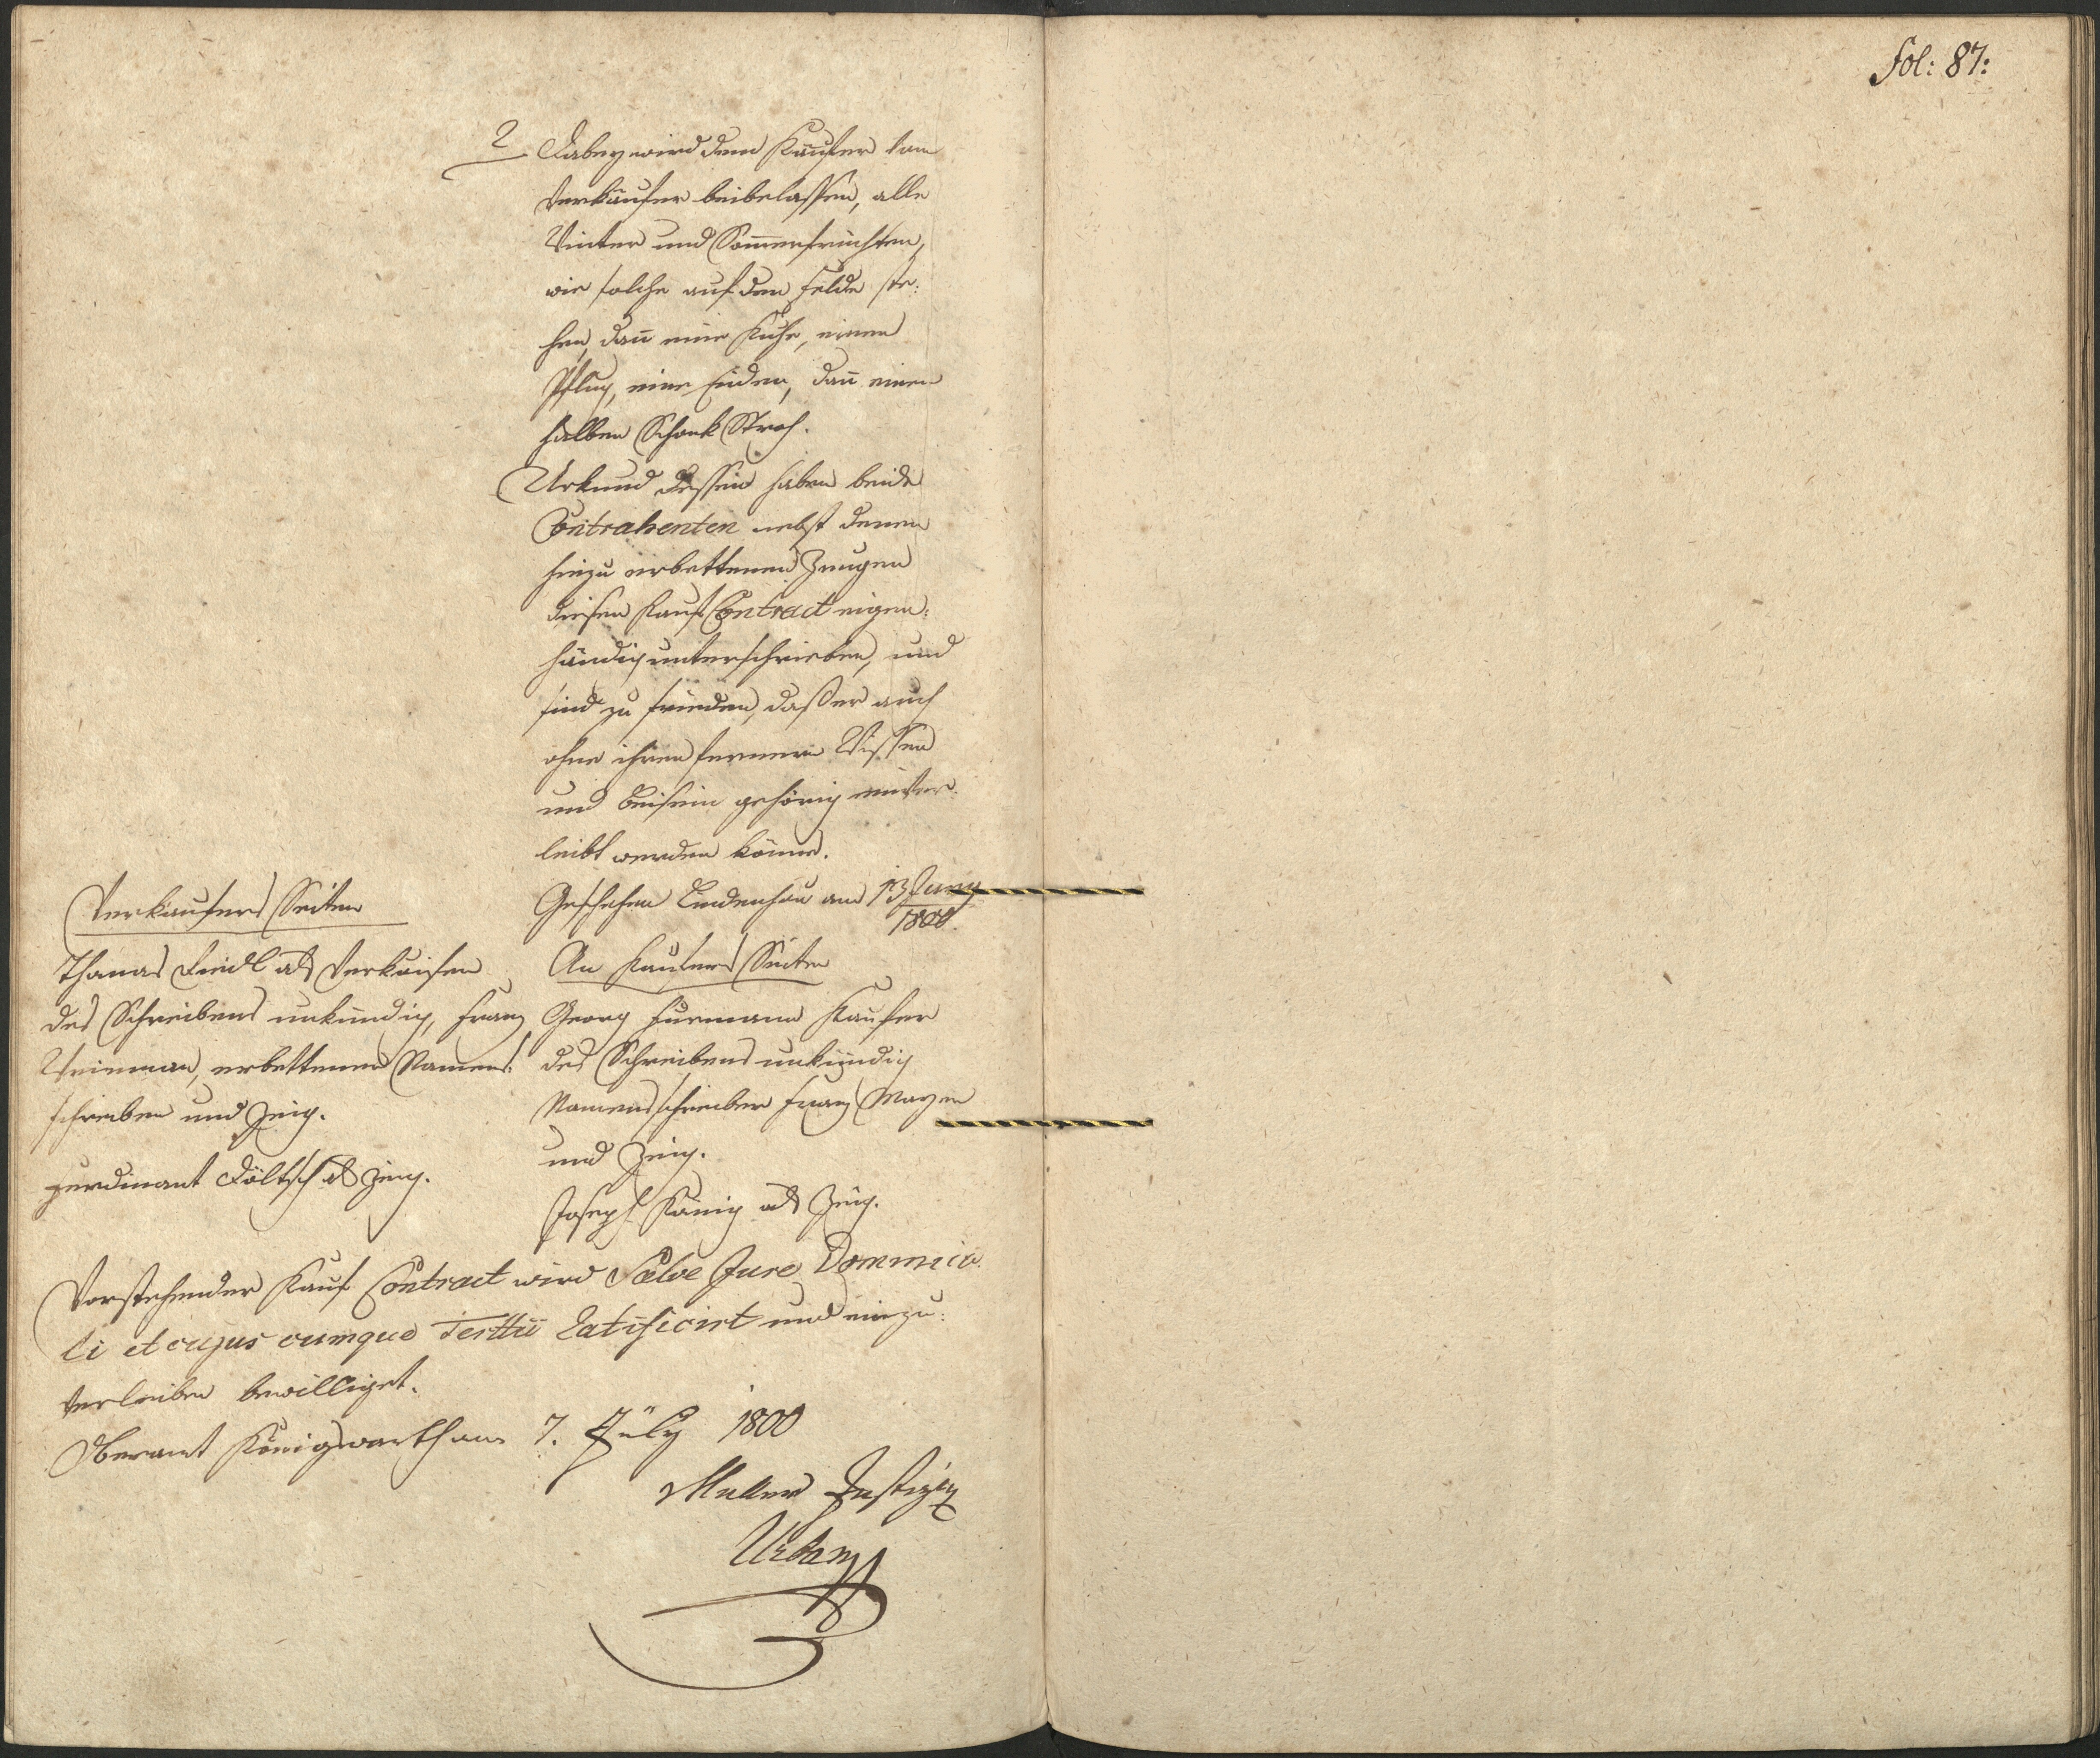 fol: 87:
2 Dabey wird dem Käufer vom
Verkäufer beibelassen, alle
Winter und Sommerfrüchten,
wie solche auf dem Felde ste:
hen, dañ eine Kuhe, einen
Pflug, eine Eiden, dañ einen
halben Schock Stroh.
Urkund dessen haben beide
Contrahenten nebst denen
hiezu erbettenen Zeugen
diesen Kauf Contract eigen:
händig unterschrieben, und
sind zu frieden, daß er auch
ohne ihren fernern Wissen
und Beisein gehörig einver:
leibt werden könne.
Geschehen Lindenhau am 13 Juny
1800.
Verkäufers Seiten
Thomas als Verkäufer
des Schreibens unkündig, Franz
erbettener Namens:
schreiber und Zeig.
als Zeig.
An Kaufers Seiten
Georg Kaufer
des Schreibens unkündig
Namensschreiber Franz Mayer
und Zeig.
Joseph König als Zeig.
Vorstehender Kauf Contract wird Salvo Jure Dominica
li et cujus cumque Tertii Ratificirt und einzu:
verleiben bewilliget.
Oberamt Königswarth am 7. July 1800
Muller
Urban